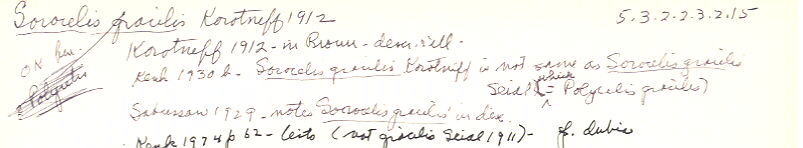 Sorocelis gracilis Korotneff 1912 5.3.2.2.3.2.15
Korotneff 1912 - in Brown - descr. ill.
OK Ken.
Polycelis
Kenk 1930 b - Sorocelis gracilis Korotneff is not same as Sorocelis gracilis
Seidl (which = Polycelis gracilis)
Sabussow 1929 - notes Sorocelis gracilis in dex.
Kenk 1974 p 62 - lists (not gracilis Seidl 1911) - sp. dubia